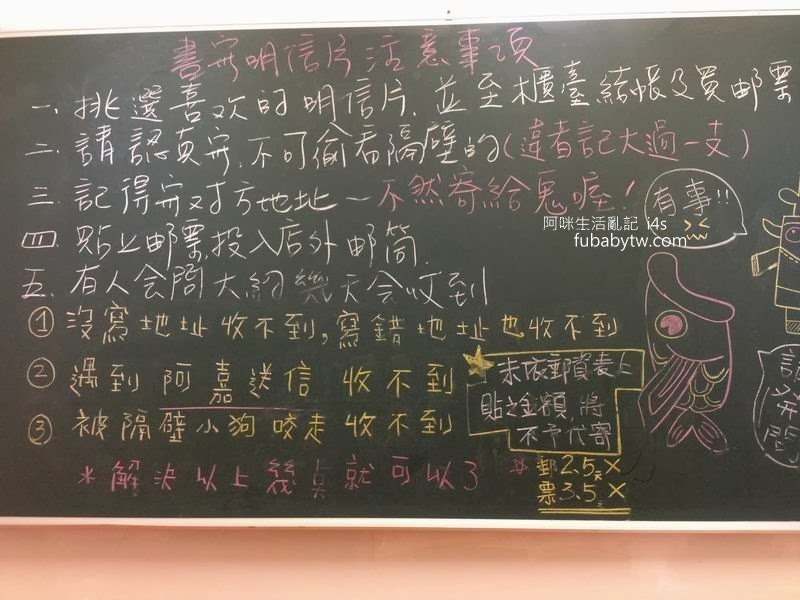 書寫明信片注意事項
一、挑選喜欢的明信片,並至櫃臺結帳及買邮票
二、請認真寫,不可偷看隔壁的(違者記大過一支)
三、記得寫对方地址一不然寄給鬼喔!
四、貼上邮票投入店外邮筒.
五、有人会問大約幾天会收到
① 沒寫地址收不到,寫錯地址也收不到
② 遇到阿嘉送信收不到
③ 被隔壁小狗咬走收不到
*解決以上幾点就可以了
有事!!
阿咪生活亂記 i4s
fubabytw.com
未依郵資表上
貼之金額,將
不予代寄
*郵2.5元X
票3.5元X